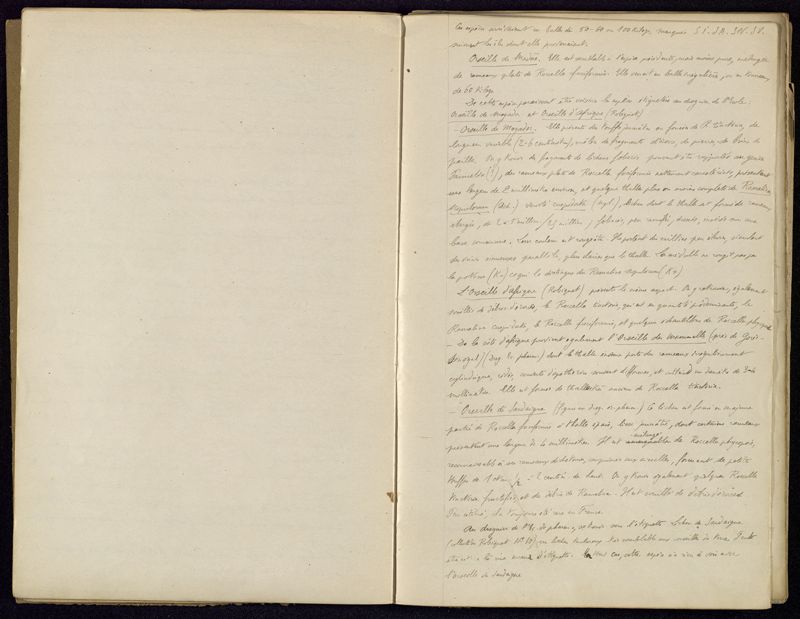 Ces espèces arrivaient en balles de 50-60 ou 100 Kilogs, marquées S.I. S.A. S.N. S.V.
suivant l'île dont elle provenaient.
Orseille de Madère. Elle est semblable à l'espèce précédente, mais moins pure, mélangée
de rameaux plats de Roccella fuciformis. Elle venait en balles irrégulières, ou en tonneaux
de 60 Kilogs
De cette espèce paraissent être voisins les espèces étiquetées au droguier de l'Ecole:
Orseille de Mogador et Orseille d'Afrique (Robiquet)
- Orseille de Mogador. Elle présente des touffes formées de R. tinctoria, de
longueur variable (2-6 centimètres), mêlées de fragments d'écorce, de pierres, de brins de
paille. On y trouve des fragments de lichens foliacés pouvant être rapportés au genre
Parmelia (?), des rameaux plats de Roccella fuciformis nettement caractérisés, présentant
une largeur de 2 millimètres environ, et quelques thalles plus ou moins complets de Ramalina
scopulorum (Ach.) variété cuspidata (Nyl.), lichen dont le thalle est formé de rameaux
allongés, de 2 à 5 millim., foliacés, peu ramifiés, dressés, insérés sur une
base commune. Leur couleur est rougeâtre. Ils portent des
stries sinueuses parallèles, plus claires que le thalle. La médulle ne rougit pas par
la potasse (K-) ce qui le distingue du Ramalina scopulorum (K+)
L'Orseille d'Afrique (Robiquet) présente le même aspect. On y retrouve, également
mêlés de débris d'écorces, le Roccella tinctoria, qui est en quantité prédominante, le
Ramalina cuspidata, le Roccella fuciformis, et quelques échantillons de Roccella phycopsis
- De la côte d'Afrique provient également l'Orseille des mamelles (près de Gorée
Sénégal) (Drog. Ec. pharm.) dont le thalle énorme porte des rameaux irrégulièrement
cylindriques, raides, couverts d'apothécies souvent difformes, et atteint un diamètre de 3-4
millimètres. Elle est formée de thalles très anciens de Roccella tinctoria.
- Orseille de Sardaigne (figure au drog. Ec. pharm.) Ce lichen est formé en majeure
partie de Roccella fuciformis à thalle épais, bien pruineux, dont certains rameaux
présentent une largeur de 6 millimètres. Il est mélangé de Roccella phycopsis,
reconnaissable à ses rameaux dichotomes, comprimés aux aisselles, formant de petites
touffes de 1 cm 1/2 - 2 centim. de haut. On y trouve également quelques Roccella
tinctoria fructifiés, et des débris de Ramalina. Il est mêlé de débris d'écorces
Peu estimé, il a toujours été rare en France.
Au droguier de l'Ec. de pharm., se trouve sous l'étiquette Lichen de Sardaigne
(collection Robiquet
d'étiquette. En tous cas, cette espèce n'a rien à voir avec
l'orseille de Sardaigne